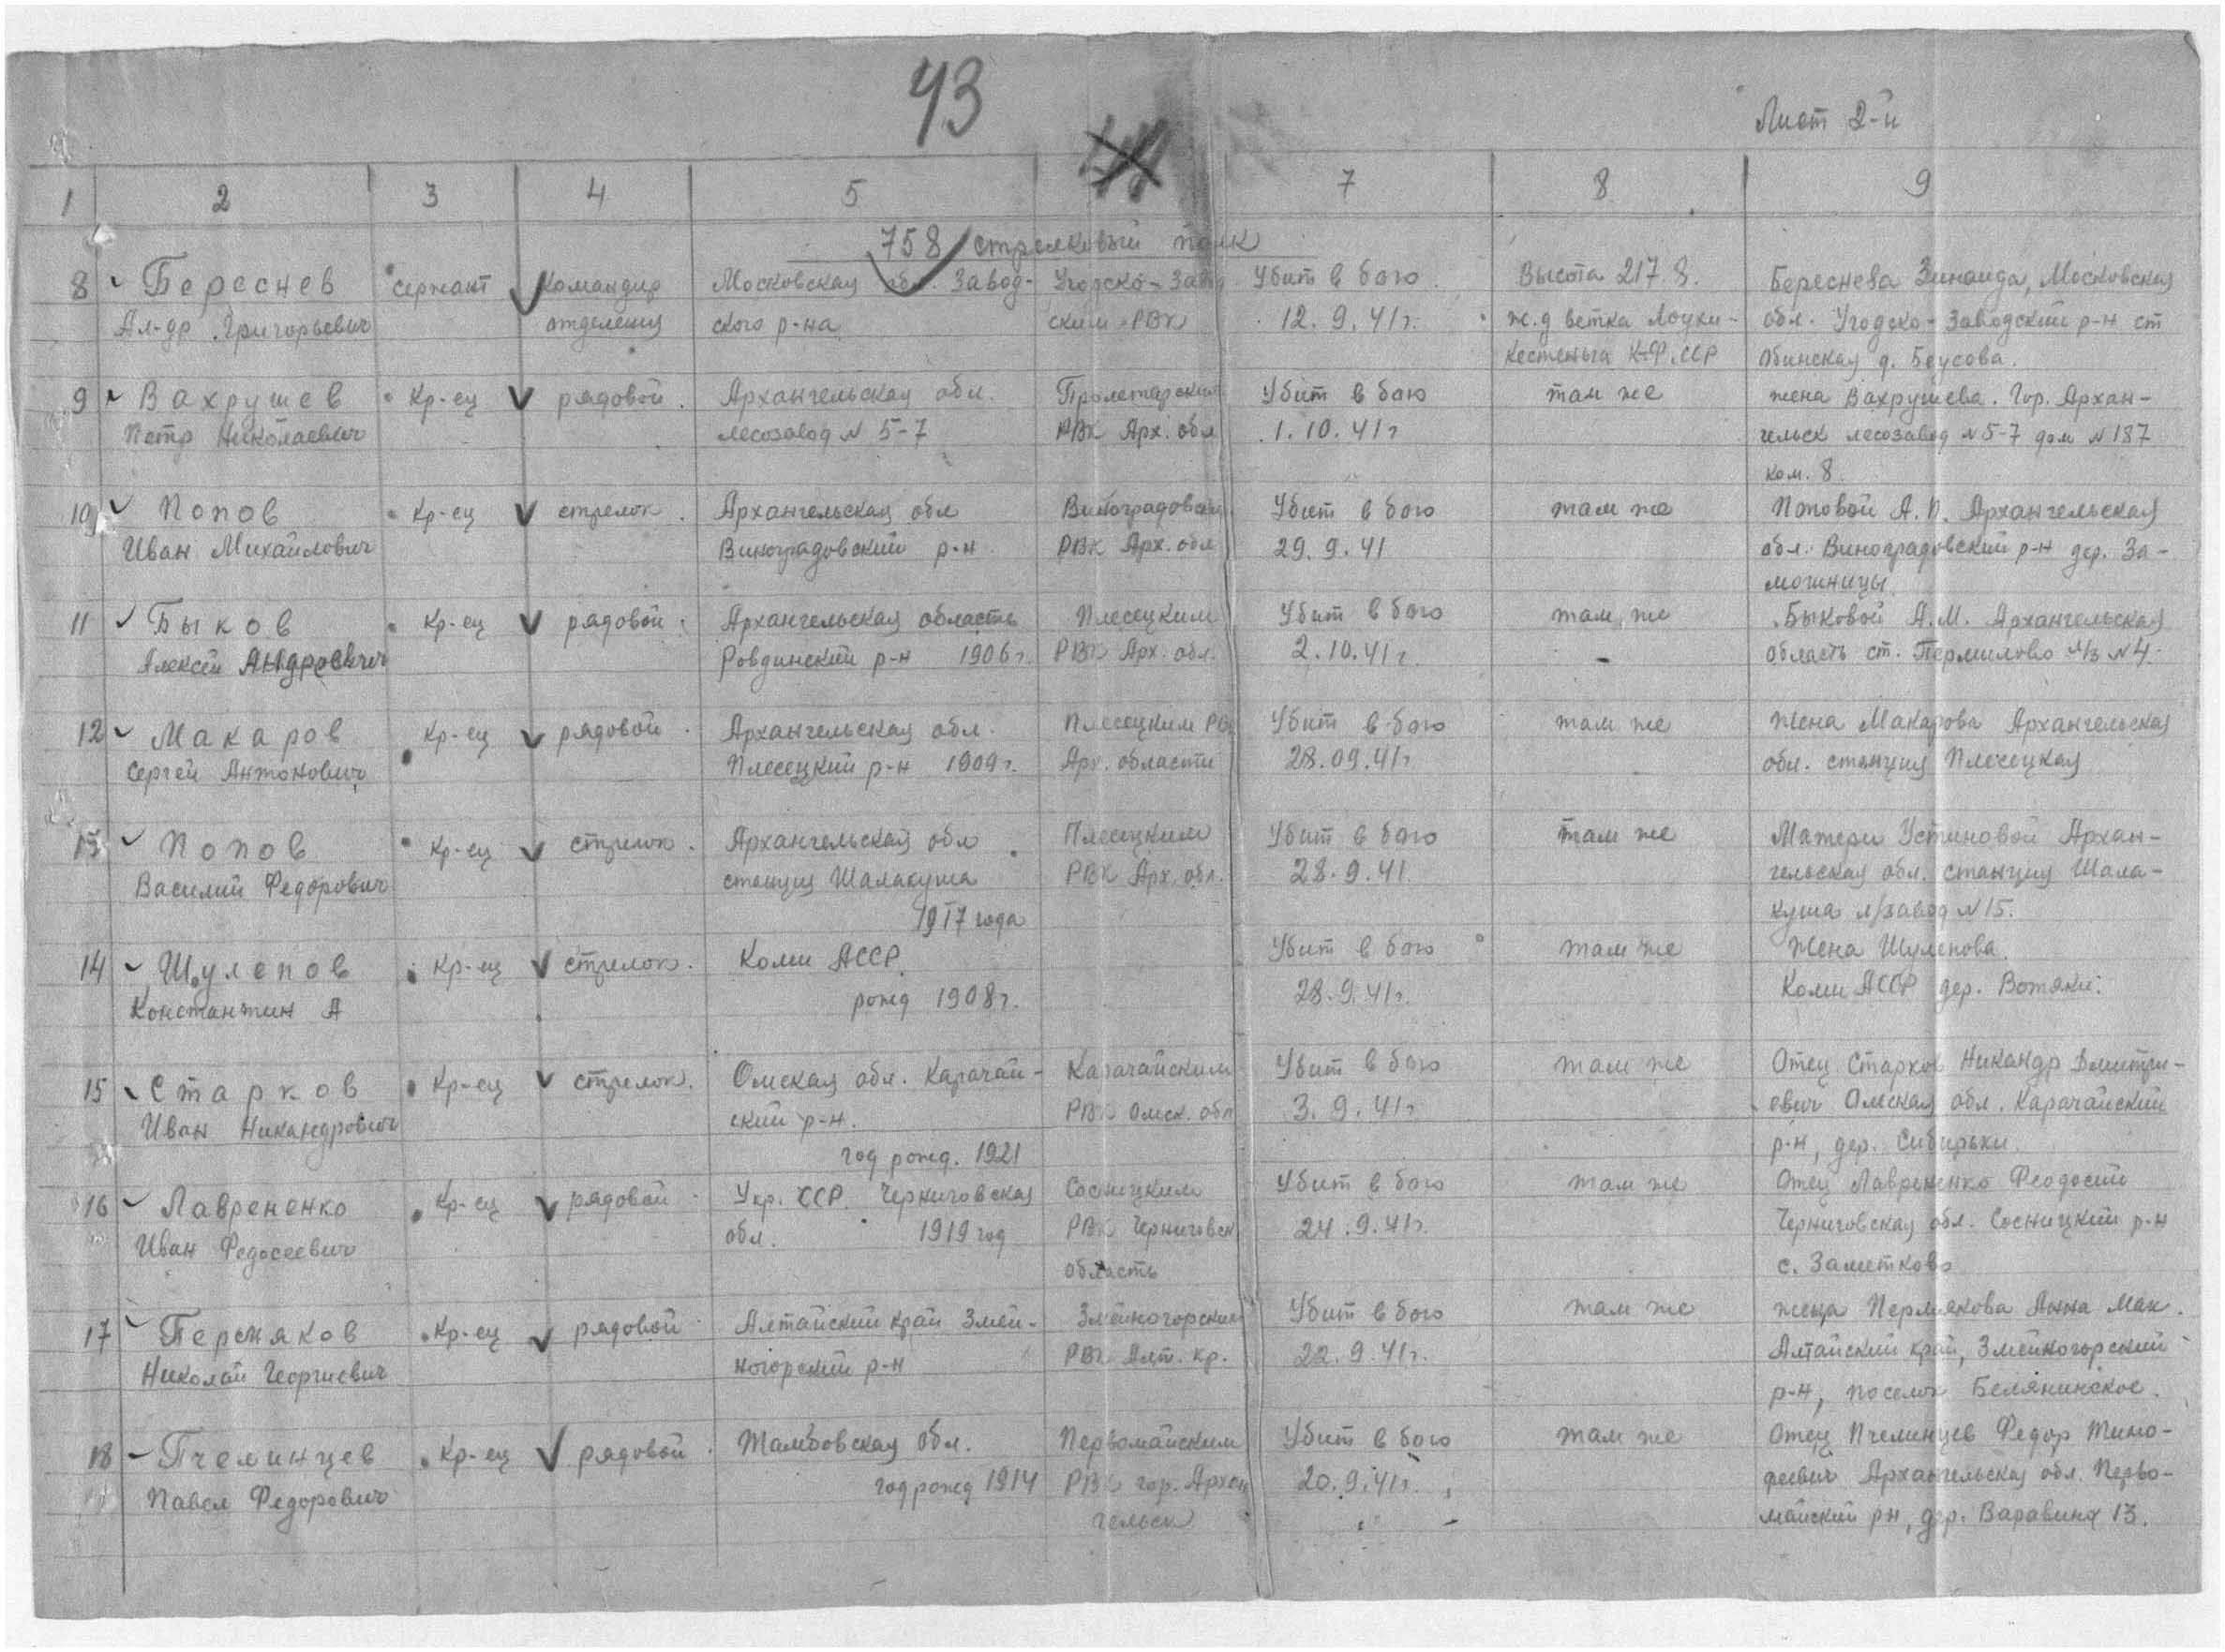 43
Лист 2-й
1 2 3 4 5 7 8 9
758 стрелковый полк
8 Береснев сержант Командир Московская обл. Завод- Угодско-Завод Убит в бою Высота 217.8. Береснева Зинаида, Московская
Ал-др Григорьевич отделения ского р-на ским РВК 12.9.41г. ж.д ветка Лоухи- обл. Угодско-Заводский р-н ст
Кестеньга К-Ф.ССР Обинская д. Беусова.
9 Вахрушев Кр-ец рядовой. Архангельская обл. Пролетарским Убит в бою там же жена Вахрушева. Гор. Архан-
Петр Николаевич лесозавод N 5-7 РВК Арх. обл 1.10.41г гельск лесозавод N 5-7 дом N 187
ком. 8.
10 Попов Кр-ец стрелок. Архангельская обл Виноградовским Убит в бою там же Поповой А.П. Архангельская
Иван Михайлович Виноградовский р-н РВК Арх. обл 29.9.41 обл. Виноградовский р-н дер. За-
мошницы.
11 Быков Кр-ец рядовой. Архангельская область Плесецким Убит в бою там же Быковой А.М. Архангельская
Алексей Андреевич Ровдинский р-н 1906г. РВК Арх. обл. 2.10.41г - область ст. Пермилово л/з N 4.
12 Макаров Кр-ец рядовой. Архангельская обл. Плесецким РВК Убит в бою там же жена Макарова Архангельская
Сергей Антонович Плесецкий р-н 1909г. Арх. области 28.09.41г обл. станция Плесецкая
13 Попов Кр-ец стрелок. Архангельская обл Плесецким Убит в бою там же Матери Устиновой Архан-
Василий Федорович станция Шалакуша РВК Арх. обл. 28.9.41. гельская обл. станция Шала-
1917 года куша л/завод N 15.
14 Шулепов Кр-ец стрелок. Коми АССР. Убит в бою там же Жена Шулепова.
Константин А рожд 1908г. 28.9.41г. Коми АССР дер. Вотяки.
15 Старков Кр-ец стрелок. Омская обл. Карачай- Карачайским Убит в бою там же Отец Старков Никандр Дмитри-
Иван Никандрович ский р-н. РВК Омск. обл 3.9.41г евич Омская обл. Карачайский
год рожд. 1921 р-н, дер. Сибирьки.
16 Лаврененко Кр-ец рядовой Укр. ССР. Черниговская Сосницким Убит в бою там же Отец Лаврененко Феодосий
Иван Федосеевич обл. 1919 год РВК Черниговск 24.9.41г. Черниговская обл. Сосницкий р-н
область с. Заметково
17 Пермяков Кр-ец рядовой Алтайский край Змей- Змеиногорским Убит в бою там же жена Пермякова Анна Мак.
Николай Георгиевич ногорский р-н РВК Алт. кр. 22.9.41г. Алтайский край, Змейногорский
р-н, поселок Белянинское.
18 Пчелинцев Кр-ец рядовой. Тамбовская обл. Первомайским Убит в бою там же Отец Пчелинцев Федор Тимо-
Павел Федорович год рожд 1914 РВК гор. Архан 20.9.41г. феевич Архангельская обл. Перво-
гельск майский рн, дер. Варавина 13.